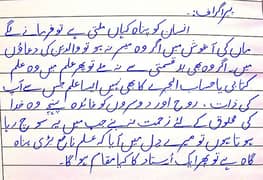 پیراگراف:۔
انسان کو پناہ کہاں ملتی ہے تو فرمانے لگے
ماں کی آغوش میں اگر وہ میسر نہ ہو تو والدین کی دعاؤں
میں۔ اگر وہ بھی بدقسمتی سے نہ ملے تو پھر علم میں وہ علم
کتابی یا حساب الجبرے کا ہی نہیں ایسا علم جس سے آپ
کی ذات، روح اور دوسروں کو فائدہ پہنچے وہ خدا
کی مخلوق کے لئے زحمت نہ بنے جب میں یہ سوچ رہا
ہوتا ہوں تو میرے دل میں آیا کہ علم نافع بڑی پناہ
گاہ ہے تو پھر ایک استاد کا کیا مقام ہوگا۔